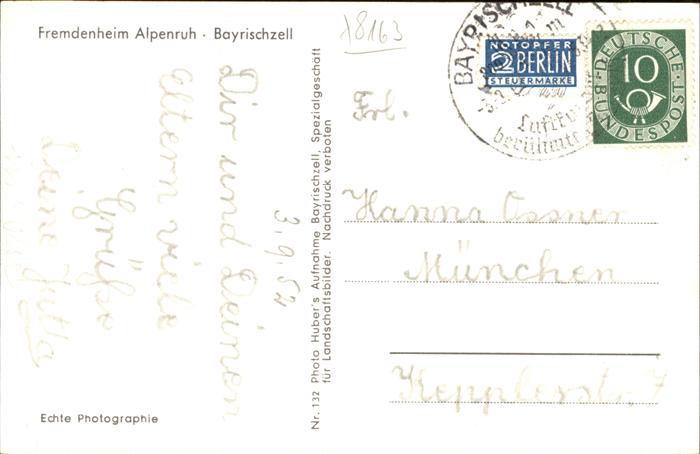 Fremdenheim Alpenruh · Bayrischzell
18163
3.9.52
Dir und Deinen
Eltern viele
Grüße
Deine Jutta
Echte Photographie
Nr. 132 Photo Huber's Aufnahme Bayrischzell, Spezialgeschäft
für Landschaftsbilder. Nachdruck verboten
BAYRISCHZELL
Luftku
berühmte
NOTOPFER
2 BERLIN
STEUERMARKE
DEUTSCHE
10
BUNDESPOST
Frl.
Hanna Ossner
München
Kepplerstr. 7